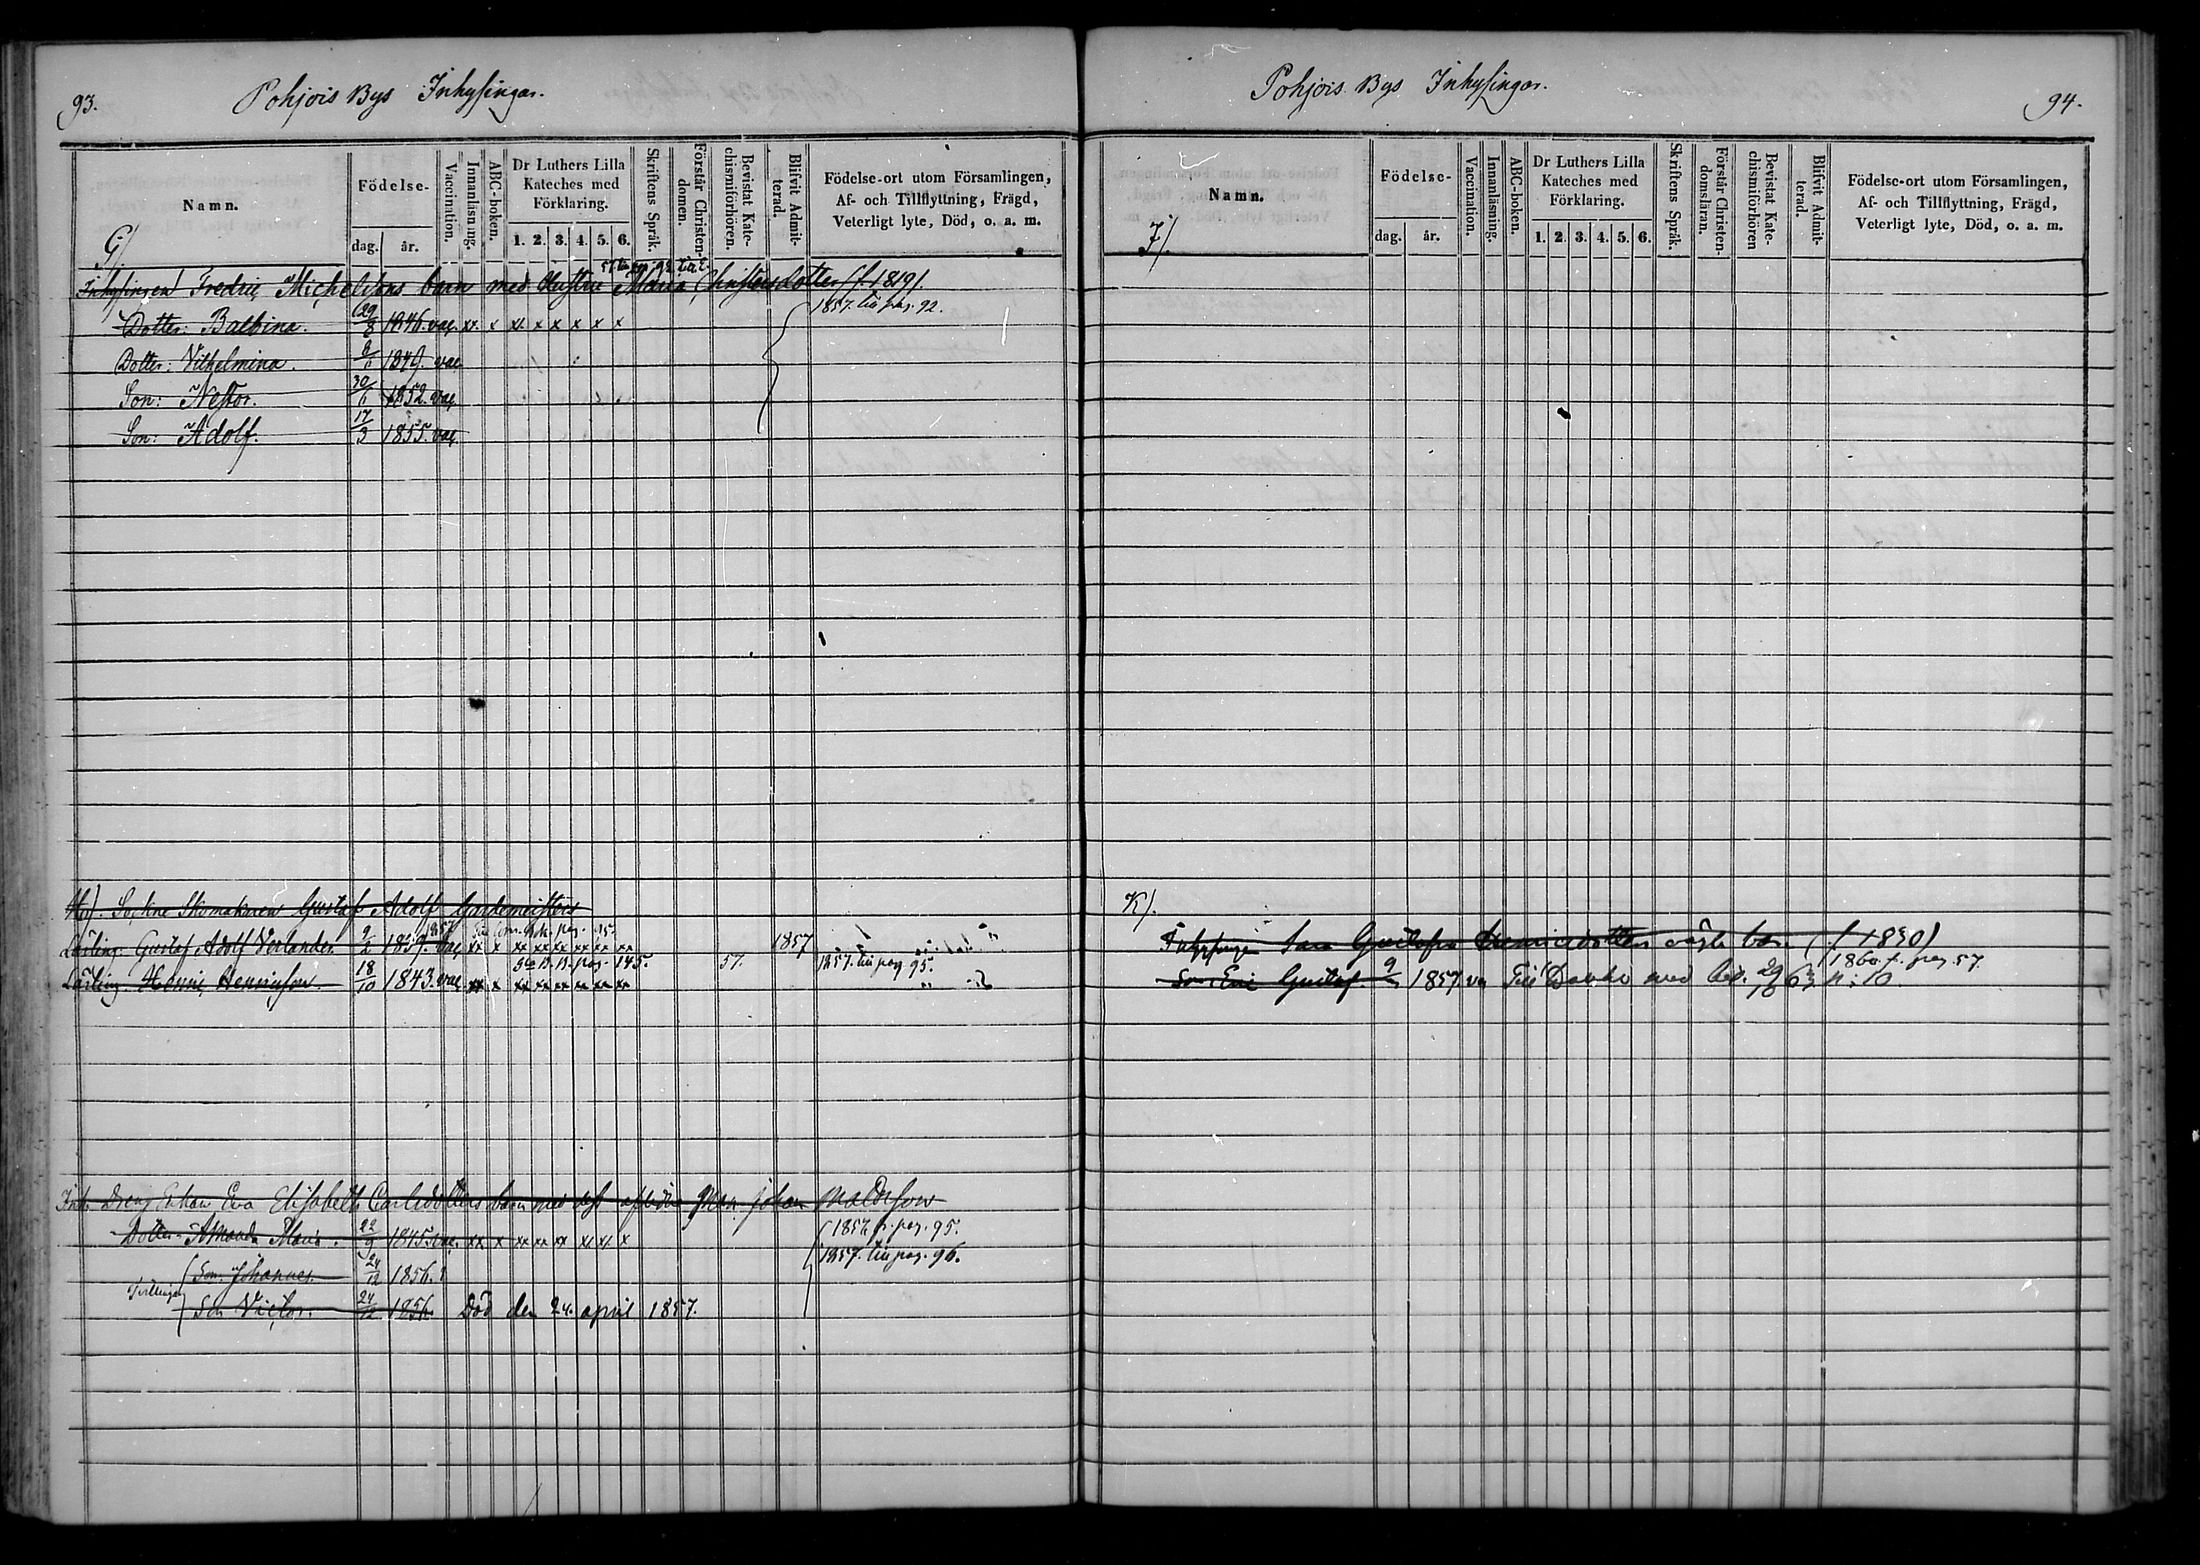 93. Pohjois Bys Inhysingar.
Namn.
Födelse-
dag. år.
Vaccination.
Innanläsning.
ABC-boken.
Dr Luthers Lilla
Kateches med
Förklaring.
1. 2. 3. 4. 5. 6.
Skriftens Språk.
Förstår Christen-
domen.
Bevistat Kate-
chismiförhören.
Blifvit Admit-
terad.
Födelse-ort utom Församlingen,
Af- och Tillflyttning, Frägd,
Veterligt lyte, Död, o. a. m.
G/.
Inhysingen Fredric Michelssons barn med Hustru Maria Christersdotter (f. 1819).
Dotter: Balbina. 29/8 1846. vac. xx x xx x x x x x 1857. till pag. 92.
Dotter: Vilhelmina. 1849. vac.
Son: Nestor. 30/6 1852. vac.
Son: Adolf. 17/3 1855. vac.
H). Sockne Skomakaren Gustaf Adolf Gardemeisters
Lärling: Gustaf Adolf Verlander. 1839. vac. xx x xx xx xx xx xx xx 1857
pag. 145. 57. 1857. till pag. 95.
Lärling: Henric Henricsson. 18/10 1843. vac. xx x xx xx xx xx xx xx
Inh. Dreng Enkan Eva Elisabeth Carlsdotters barn med dess aflidne man Johan
Dotter: Amanda Maria. 22/9 1845. vac. xx x xx xx xx x x x 1857 f. pag. 95.
1857. till pag. 96.
Son: Johannes. 24/12 1856.
Tvillingar
Son Victor. 24/12 1856. Död den 24. april 1857.
Pohjois Bys Inhysingar. 94.
Namn.
Födelse-
dag. år.
Vaccination.
Innanläsning.
ABC-boken.
Dr Luthers Lilla
Kateches med
Förklaring.
1. 2. 3. 4. 5. 6.
Skriftens Språk.
Förstår Christen-
domsläran.
Bevistat Kate-
chismiförhören
Blifvit Admit-
terad.
Födelse-ort utom Församlingen,
Af- och Tillflyttning, Frägd,
Veterligt lyte, Död, o. a. m.
J/.
K).
Sara Gustafva Henricsdotters oägta barn (f. 1830)
1860. f. pag. 57.
Son Eric Gustaf 1857. va Till med bet. 29/10 63 n: 10.